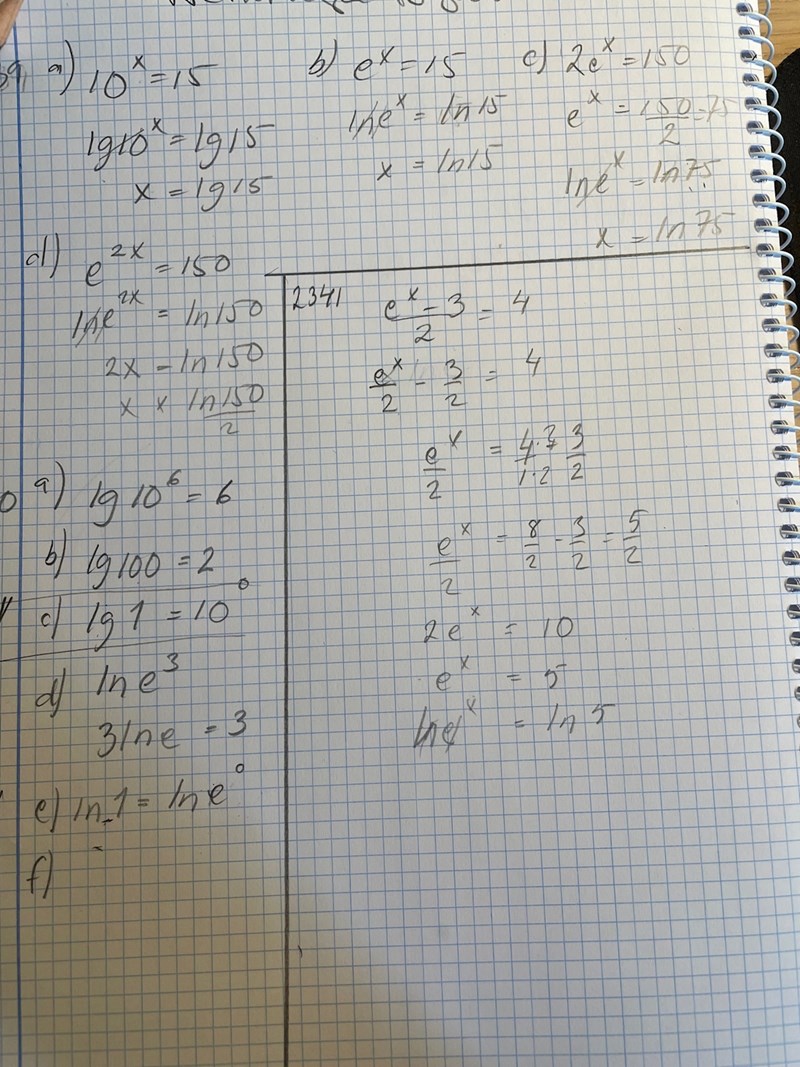 a) 10^x = 15
lg10^x = lg15
x = lg15
b) e^x = 15
lne^x = ln15
x = ln15
c) 2e^x = 150
e^x = 150/2 = 75
lne^x = ln75
x = ln75
d) e^2x = 150
lne^2x = ln150
2x = ln150
x = ln150/2
a) lg10^6 = 6
b) lg100 = 2
c) lg1 = 10^0
d) lne^3
3lne = 3
e) ln1 = lne^0
f)
2341
e^x - 3/2 = 4
e^x/2 - 3/2 = 4
e^x/2 = 4·2/1·2 3/2
e^x/2 = 8/2 - 3/2 = 5/2
2e^x = 10
e^x = 5
lne^x = ln5